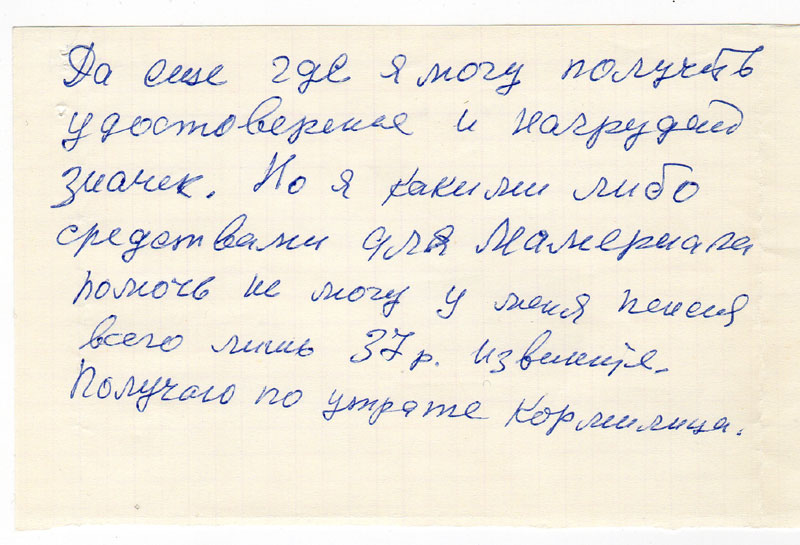 Да еще где я могу получить
удостоверенье и нагрудный
значек. Но я какими либо
средствами для Мамериала
помочь не могу у меня пенсия
всего лишь 37 р. извините.
Получаю по утрате Кормилица.